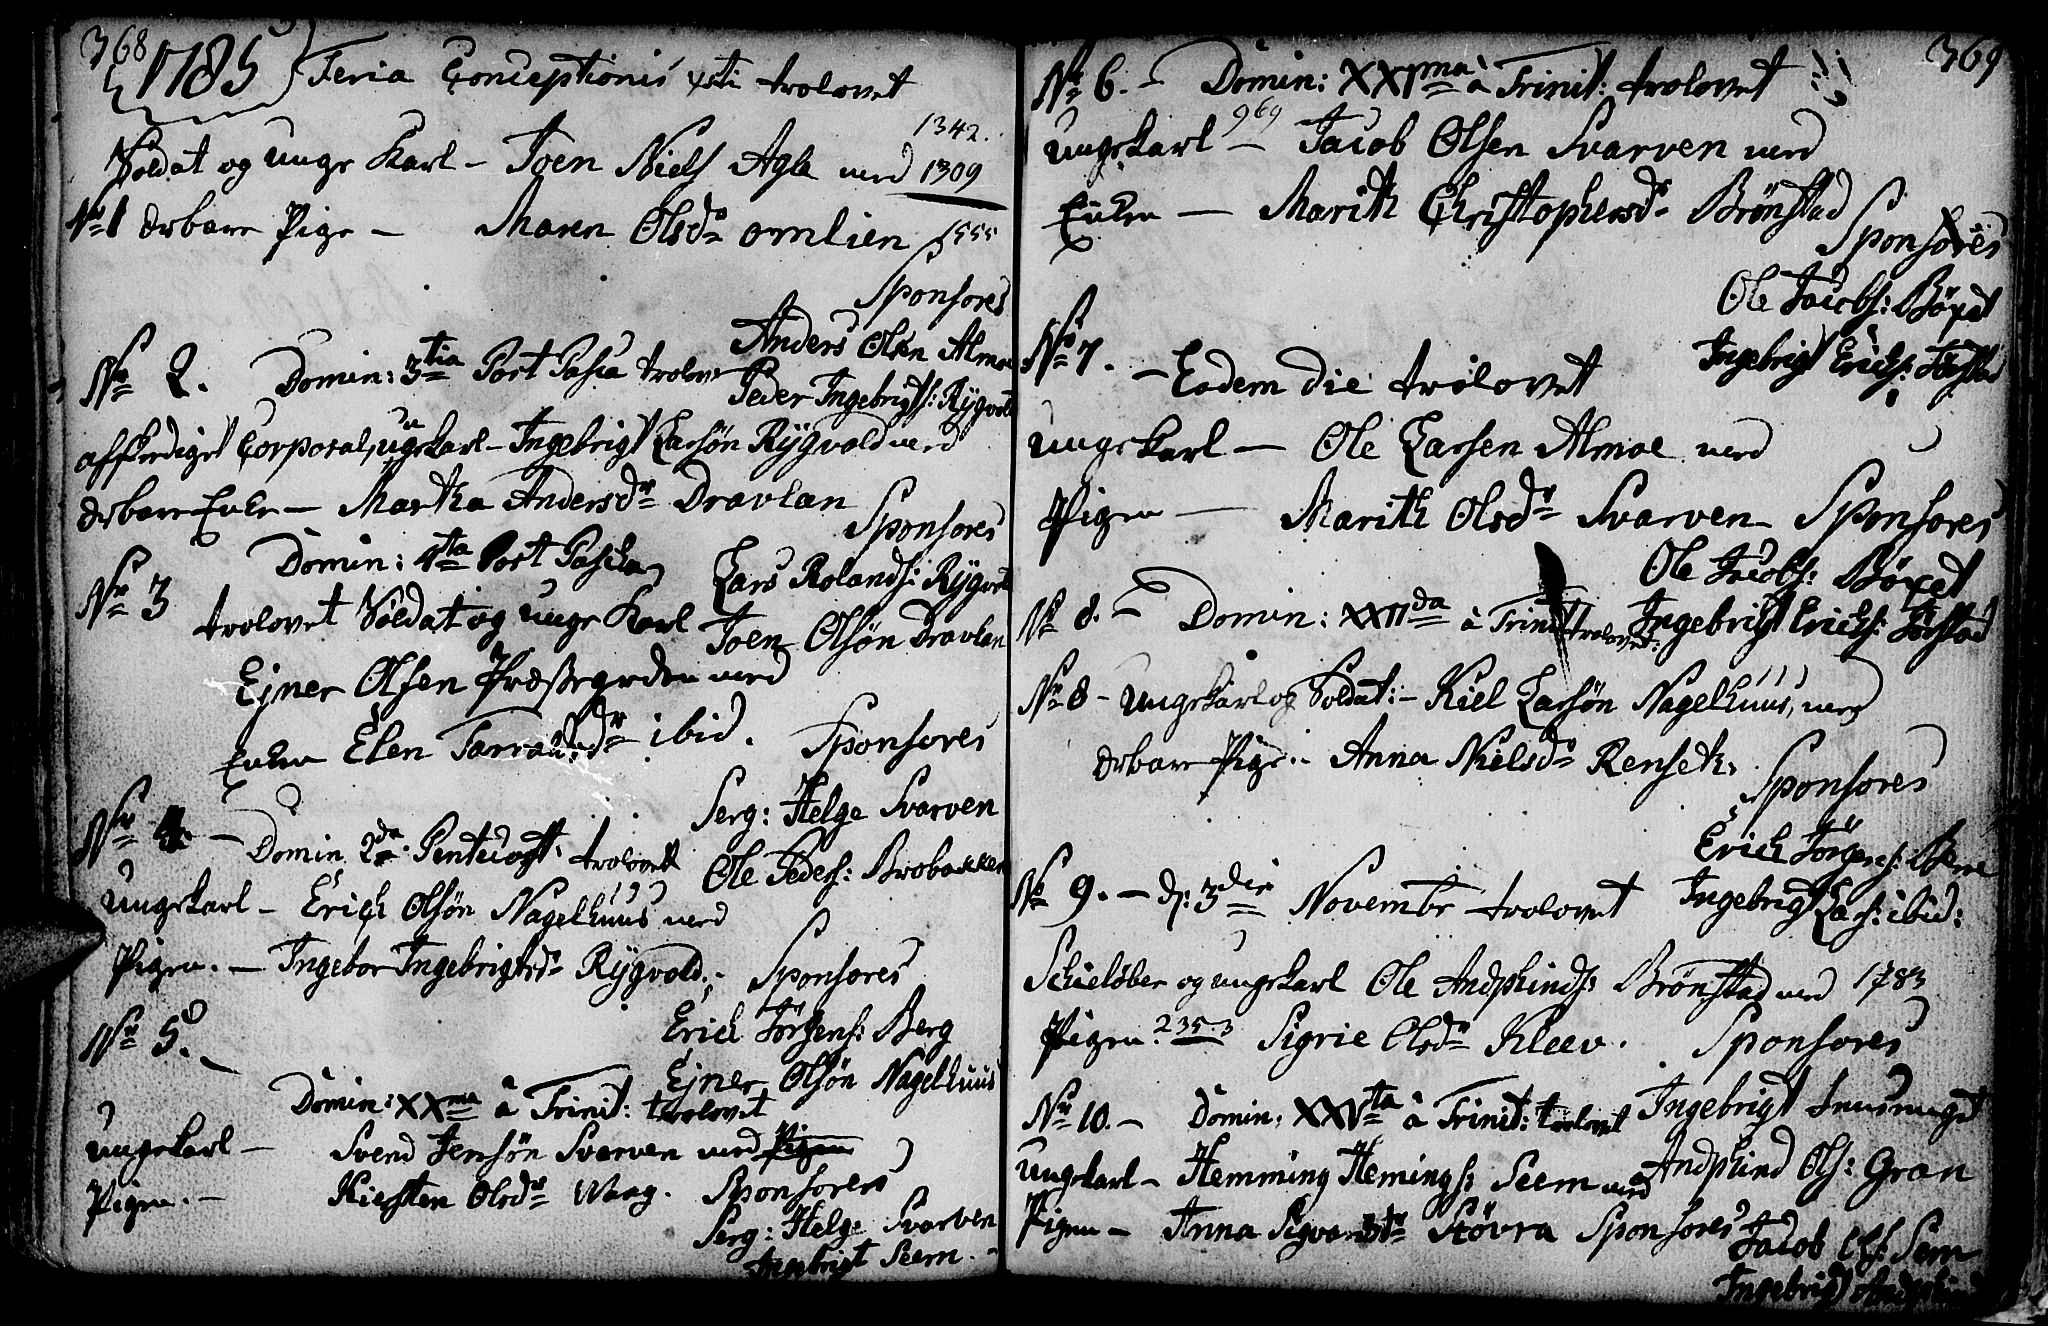 368
1785 Feria Conceptionis xsti trolovet
1342.
Soldat og unge Karl – Joen Niels Agle med 1309
No 1 ærbare Pige – Maren Olsdr Omlien 1555
Sponsores
Anders Olsen Almoe
Peder Ingebrigts: Rÿgvold
No 2. Domin: 3tia Post Pasca trolov
affskediget Corporal, ungekarl – Ingebrigt Larsøn Rÿgvold med
ærbare Enke – Martha Andersdr Dravlan
Sponsores
Lars Rolands: Rÿgvold
Joen Olsøn Dravlan
No 3 Domin: 4ta Post Pascha
trolovet Soldat og unge Karl
Ejner Olsen Præstegrden med
Enken Elen Tarraldsdr ibid.
Sponsores
Serg: Helge Svarven
Ole Peders: Brobakken
No 4. – Domin 2da Pentecost: trolovet
Ungekarl – Erich Olsøn Nagelhuus med
Pigen. – Ingebor Ingebrigtsdr Rÿgvold.
Sponsores
Erich Jörgens: Berg
Ejner Olsøn Nagelhuus
No 5. –
Domin: XXma à Trinit: trolovet
ungekarl – Svend Jensön Svarven med Pigen
Pigen. – Kiersten Olsdr Waag. Sponsores
Serg: Helge Svarven
Ingebrigt Seem.
369
No 6. – Domin: XXIma à Trinit: trolovet
ungekarl 969 – Jacob Olsen Svarven med
Enken – Marith Christophersdr Brönstad
Sponsores
Ole Jacobs: Böxet
Ingebrigt Erichs:
No 7. – Eodem die trolovet
ungekarl – Ole Larsen Almoe med
Pigen – Marith Olsdr Svarven – Sponsores
Ole Jacobs: Böxet
Ingebrigt Erichs:
No 8. – Domin: XXIIda à Trinit trolovet:
No 8 – Ungekarl og Soldat: – Kiel Larsön Nagelhuus, med
ærbare Pige: – Anna Nielsdr Renseth.
Sponsores
Erich Jörgens:
Ingebrigt Lars: ibid:
No 9. – d: 3die Novembr trolovet
Schielöber og ungekarl Ole Andphinds: Brönstad med 1783
Pigen. 235.3 Sigrie Olsdr Kleev. Sponsores
Ingebrigt
Andphind Ols: Gran
No 10. – Domin: XXIVta à Trinit: trolovet
Ungekarl – Hemming Hemings: Seem med
Pigen – Anna Sigvardsdr Stövra Sponsores
Jacob Ols: Sem
Ingebrigt